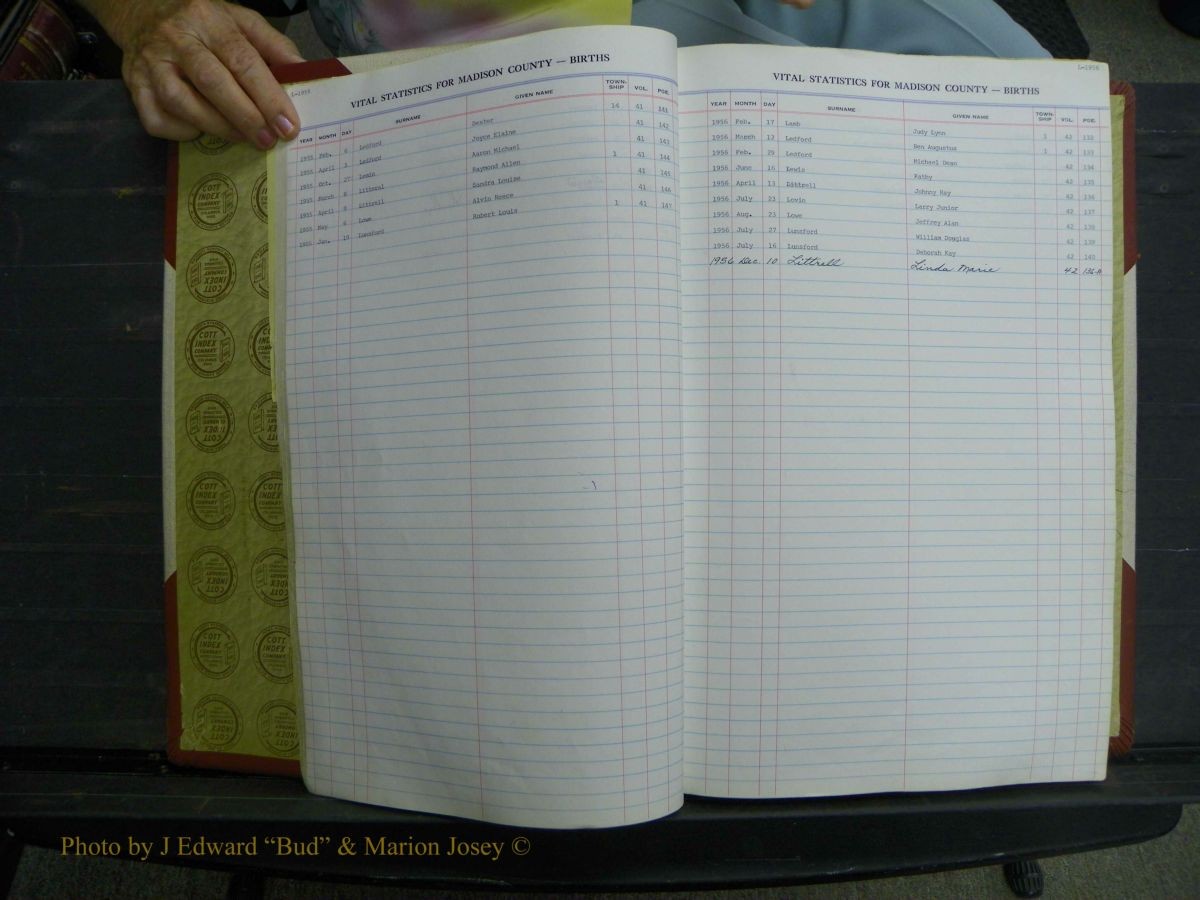 L-1955
VITAL STATISTICS FOR MADISON COUNTY — BIRTHS
YEAR MONTH DAY SURNAME GIVEN NAME TOWN-SHIP VOL. PGE.
1955 Feb. 6 Ledford Dexter 14 41 141
1955 April 3 Ledford Joyce Elaine 41 142
1955 Oct. 27 Lewis Aaron Michael 41 143
1955 March 8 Litteral Raymond Allen 1 41 144
1955 April 8 Littrell Sandra Louise 41 145
1955 May 6 Lowe Alvin Reece 41 146
1955 Jan. 19 Lunsford Robert Louis 1 41 147
L-1956
VITAL STATISTICS FOR MADISON COUNTY — BIRTHS
YEAR MONTH DAY SURNAME GIVEN NAME TOWN-SHIP VOL. PGE.
1956 Feb. 17 Lamb Judy Lynn 3 42 132
1956 March 12 Ledford Ben Augustus 1 42 133
1956 Feb. 29 Ledford Michael Dean 42 134
1956 June 16 Lewis Kathy 42 135
1956 April 13 Littrell Johnny Ray 42 136
1956 July 23 Lovin Larry Junior 42 137
1956 Aug. 23 Lowe Jeffrey Alan 42 138
1956 July 27 Lunsford William Douglas 42 139
1956 July 16 Lunsford Deborah Kay 42 140
1956 Dec. 10 Littrell Linda Marie 42 136-A
COTT INDEX COMPANY
Photo by J Edward “Bud” & Marion Josey ©